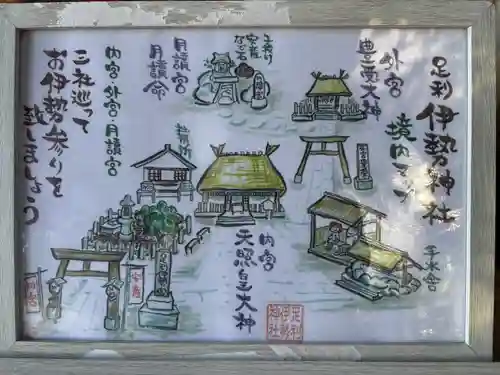 足利
伊勢神社
境内マップ
外宮
豊受大神
子授け
安産
なで石
月讀宮
月讀命
内宮 外宮 月讀宮
三社巡って
お伊勢参りを
致しましょう
内宮
天照皇大神
手水舎
足利
伊勢
神社